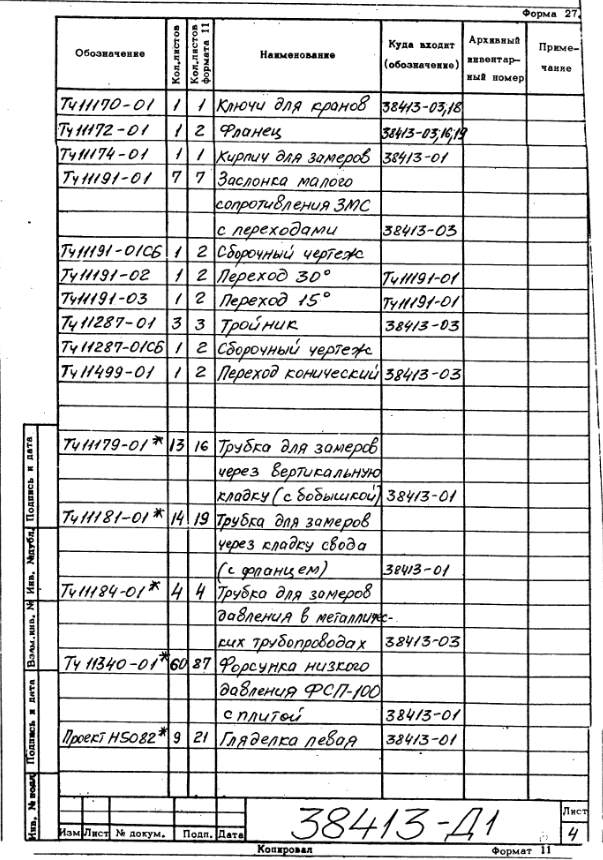 Форма 27.
Обозначение Кол.листов Кол.листов формата 11 Наименование Куда входит (обозначение) Архивный инвентарный номер Примечание
Тч11170-01 1 1 Ключи для кранов 38413-03,18
Тч11172-01 1 2 Фланец 38413-03,16,19
Тч11174-01 1 1 Кирпич для замеров 38413-01
Тч11191-01 7 7 Заслонка малого
сопротивления ЗМС
с переходами 38413-03
Тч11191-01СБ 1 2 Сборочный чертеж
Тч11191-02 1 2 Переход 30° Тч11191-01
Тч11191-03 1 2 Переход 15° Тч11191-01
Тч11287-01 3 3 Тройник 38413-03
Тч11287-01СБ 1 2 Сборочный чертеж
Тч11499-01 1 2 Переход конический 38413-03
Тч11179-01* 13 16 Трубка для замеров
через вертикальную
кладку (с бобышкой) 38413-01
Тч11181-01* 14 19 Трубка для замеров
через кладку свода
(с фланцем) 38413-01
Тч11184-01* 4 4 Трубка для замеров
давления в металличес-
ких трубопроводах 38413-03
Тч 11340-01* 60 87 Форсунка низкого
давления ФСП-100
с плитой 38413-01
Проект Н5082* 9 21 Гляделка левая 38413-01
Подпись и дата
Инв. №дубл.
Взам.инв. №
Подпись и дата
Инв. № подл
Изм Лист № докум. Подп. Дата
38413-Д1
Лист
4
Копировал Формат 11